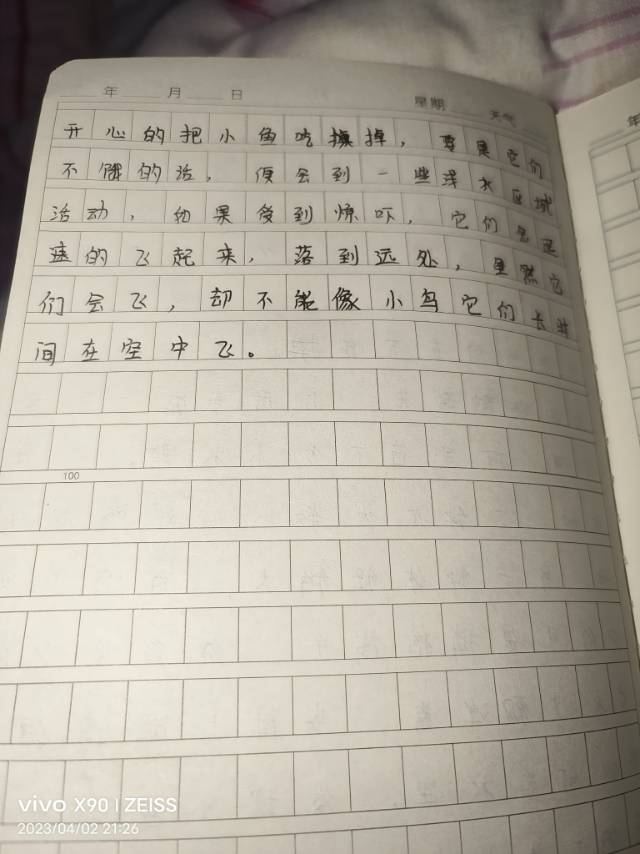 年 月 日 星期 天气
开心的把小鱼吃掉，要是它们
不饿的话，便会到一些浅水区域
活动，如果受到惊吓，它们会迅
速的飞起来，落到远处，虽然它
们会飞，却不能像小鸟它们长时
间在空中飞。
100
年
vivo X90 | ZEISS
2023/04/02 21:26